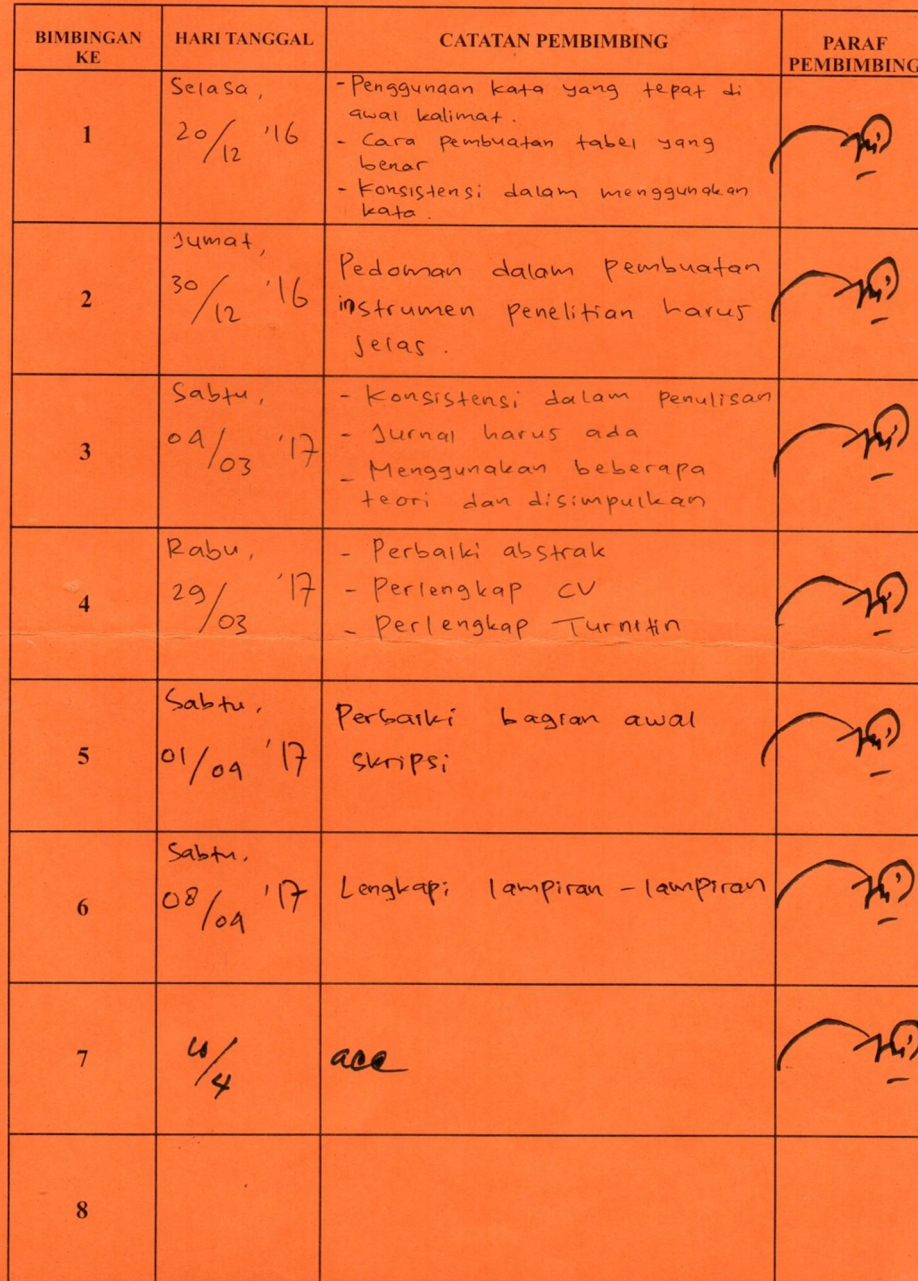 BIMBINGAN KE
HARI TANGGAL
CATATAN PEMBIMBING
PARAF PEMBIMBING
1
Selasa,
20/12 '16
- Penggunaan kata yang tepat di
awal kalimat.
- Cara pembuatan tabel yang
benar
- Konsistensi dalam menggunakan
kata.
2
Jumat,
30/12 '16
Pedoman dalam pembuatan
instrumen penelitian harus
jelas.
3
Sabtu,
04/03 '17
- Konsistensi dalam penulisan
- Jurnal harus ada
- Menggunakan beberapa
teori dan disimpulkan
4
Rabu,
29/03 '17
- Perbaiki abstrak
- Perlengkap CV
- Perlengkap Turnitin
5
Sabtu,
01/04 '17
Perbaiki bagian awal
skripsi
6
Sabtu,
08/04 '17
Lengkapi lampiran - lampiran
7
acc
8